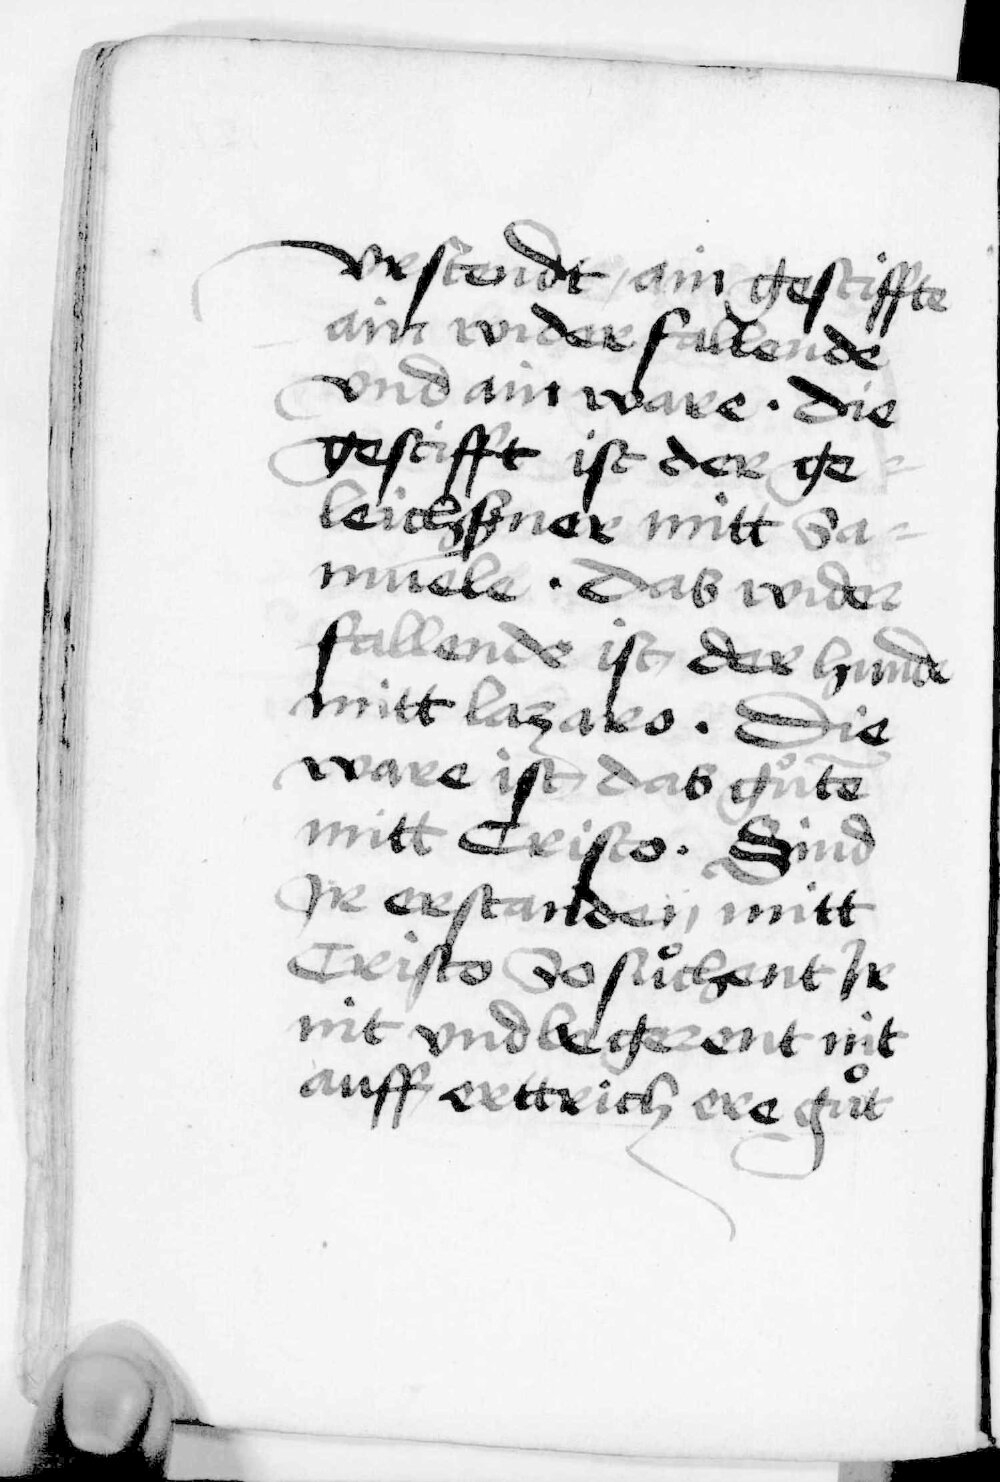 vrstendt / ain gestiffte
ain wider fallende
vnd ain ware . die
gestifft ist der ge=
leichßner mitt Sa=
muele . Das wider
fallende ist der hunde
mitt lazaro . Die
ware ist das gůtē
mitt Cristo . Sind
Jr erstanden mitt
Cristo So sůchent Jr
nit vnd begerent nit
auff erttrich ere gůt